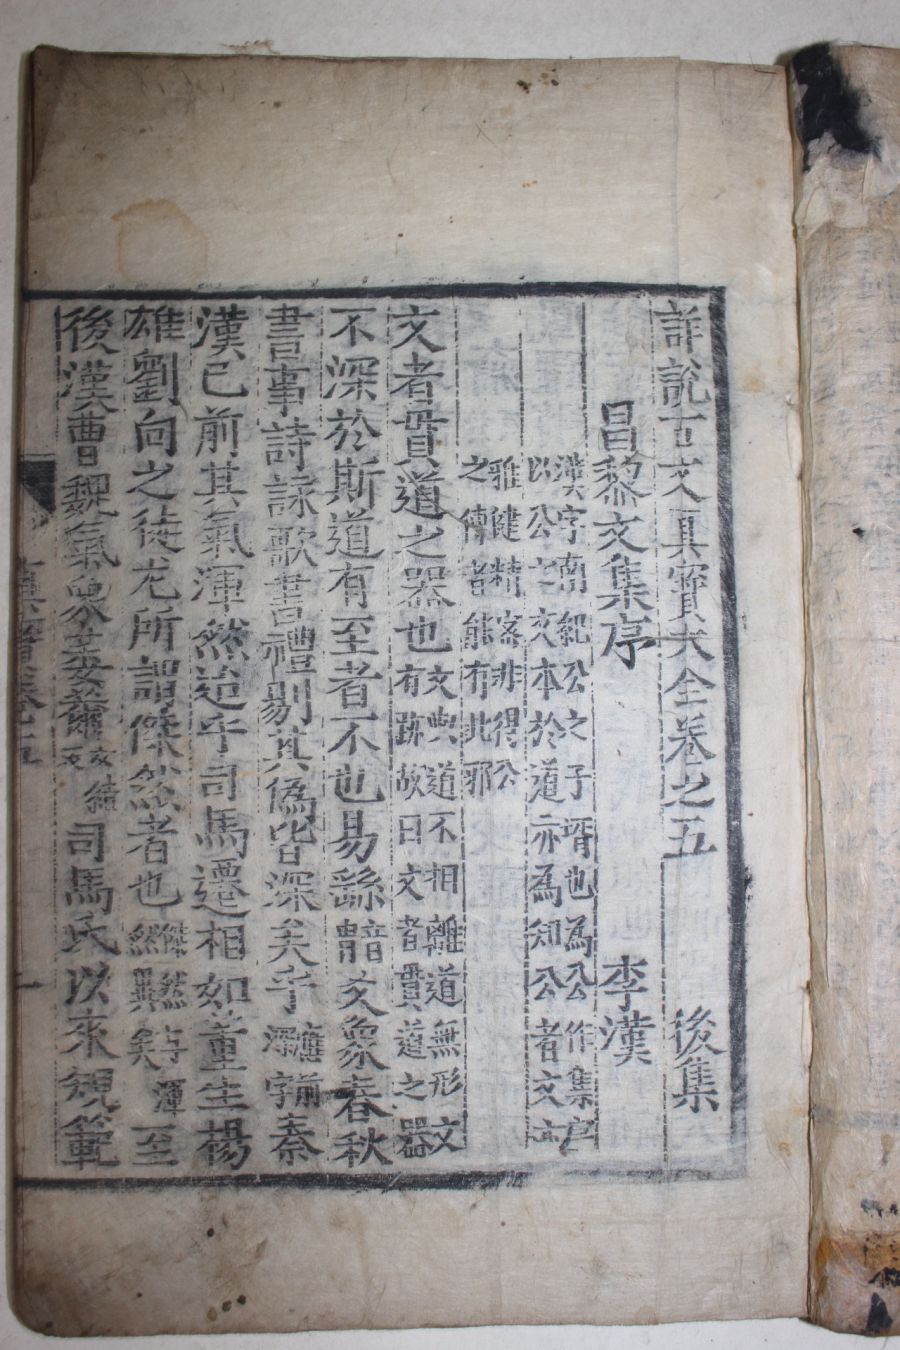 詳說古文眞寶大全卷之五 後集
昌黎文集序 李漢
漢字南紀公之子壻也爲公作集序
以公之文本於道亦爲知公者文亦
雅健精密非得公
之傳者能有此邪
文者貫道之器也 文與道不相離道無形文
有跡故曰文者貫道之器
不深於斯道有至者不也易繇爻象春秋
書事詩詠歌書禮剔其僞皆深矣乎 應前
深字 秦
漢已前其氣渾然迨乎司馬遷相如董生楊
雄劉向之徒尤所謂傑然者也 至
後漢曹魏氣象萎薾 司馬氏以來規範